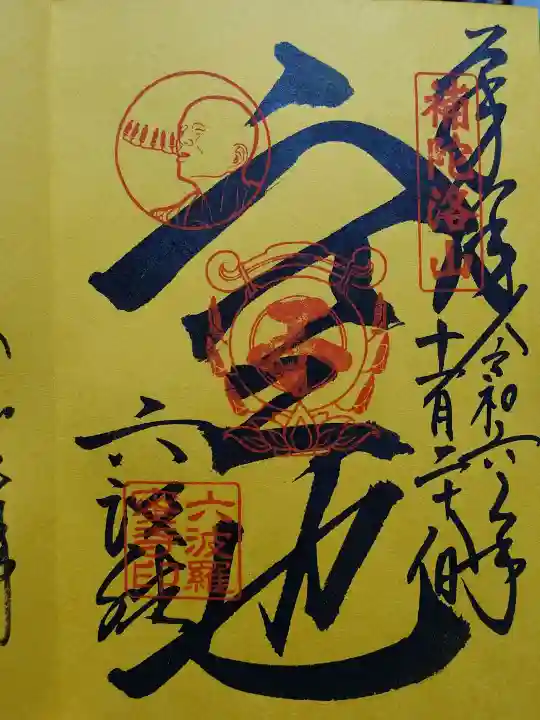 奉拝
令和六年
十一月二十七日
補陀洛山
空也
六波羅蜜寺
六波羅
蜜寺印